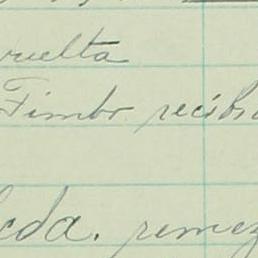 vuelta
Timbr recibi
cda. remez